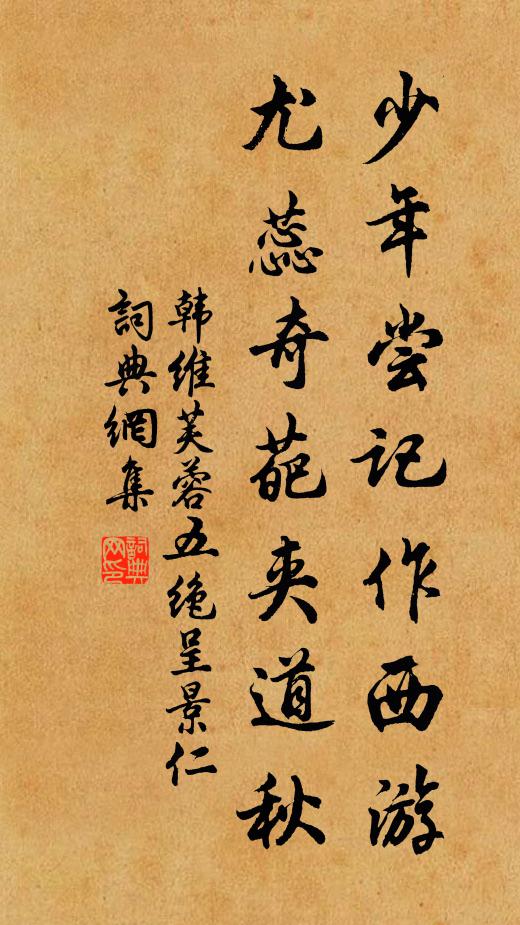 少年尝记作西游
尤蕊奇葩夹道秋
韩维芙蓉五绝呈景仁
詞典網集
詞典网印